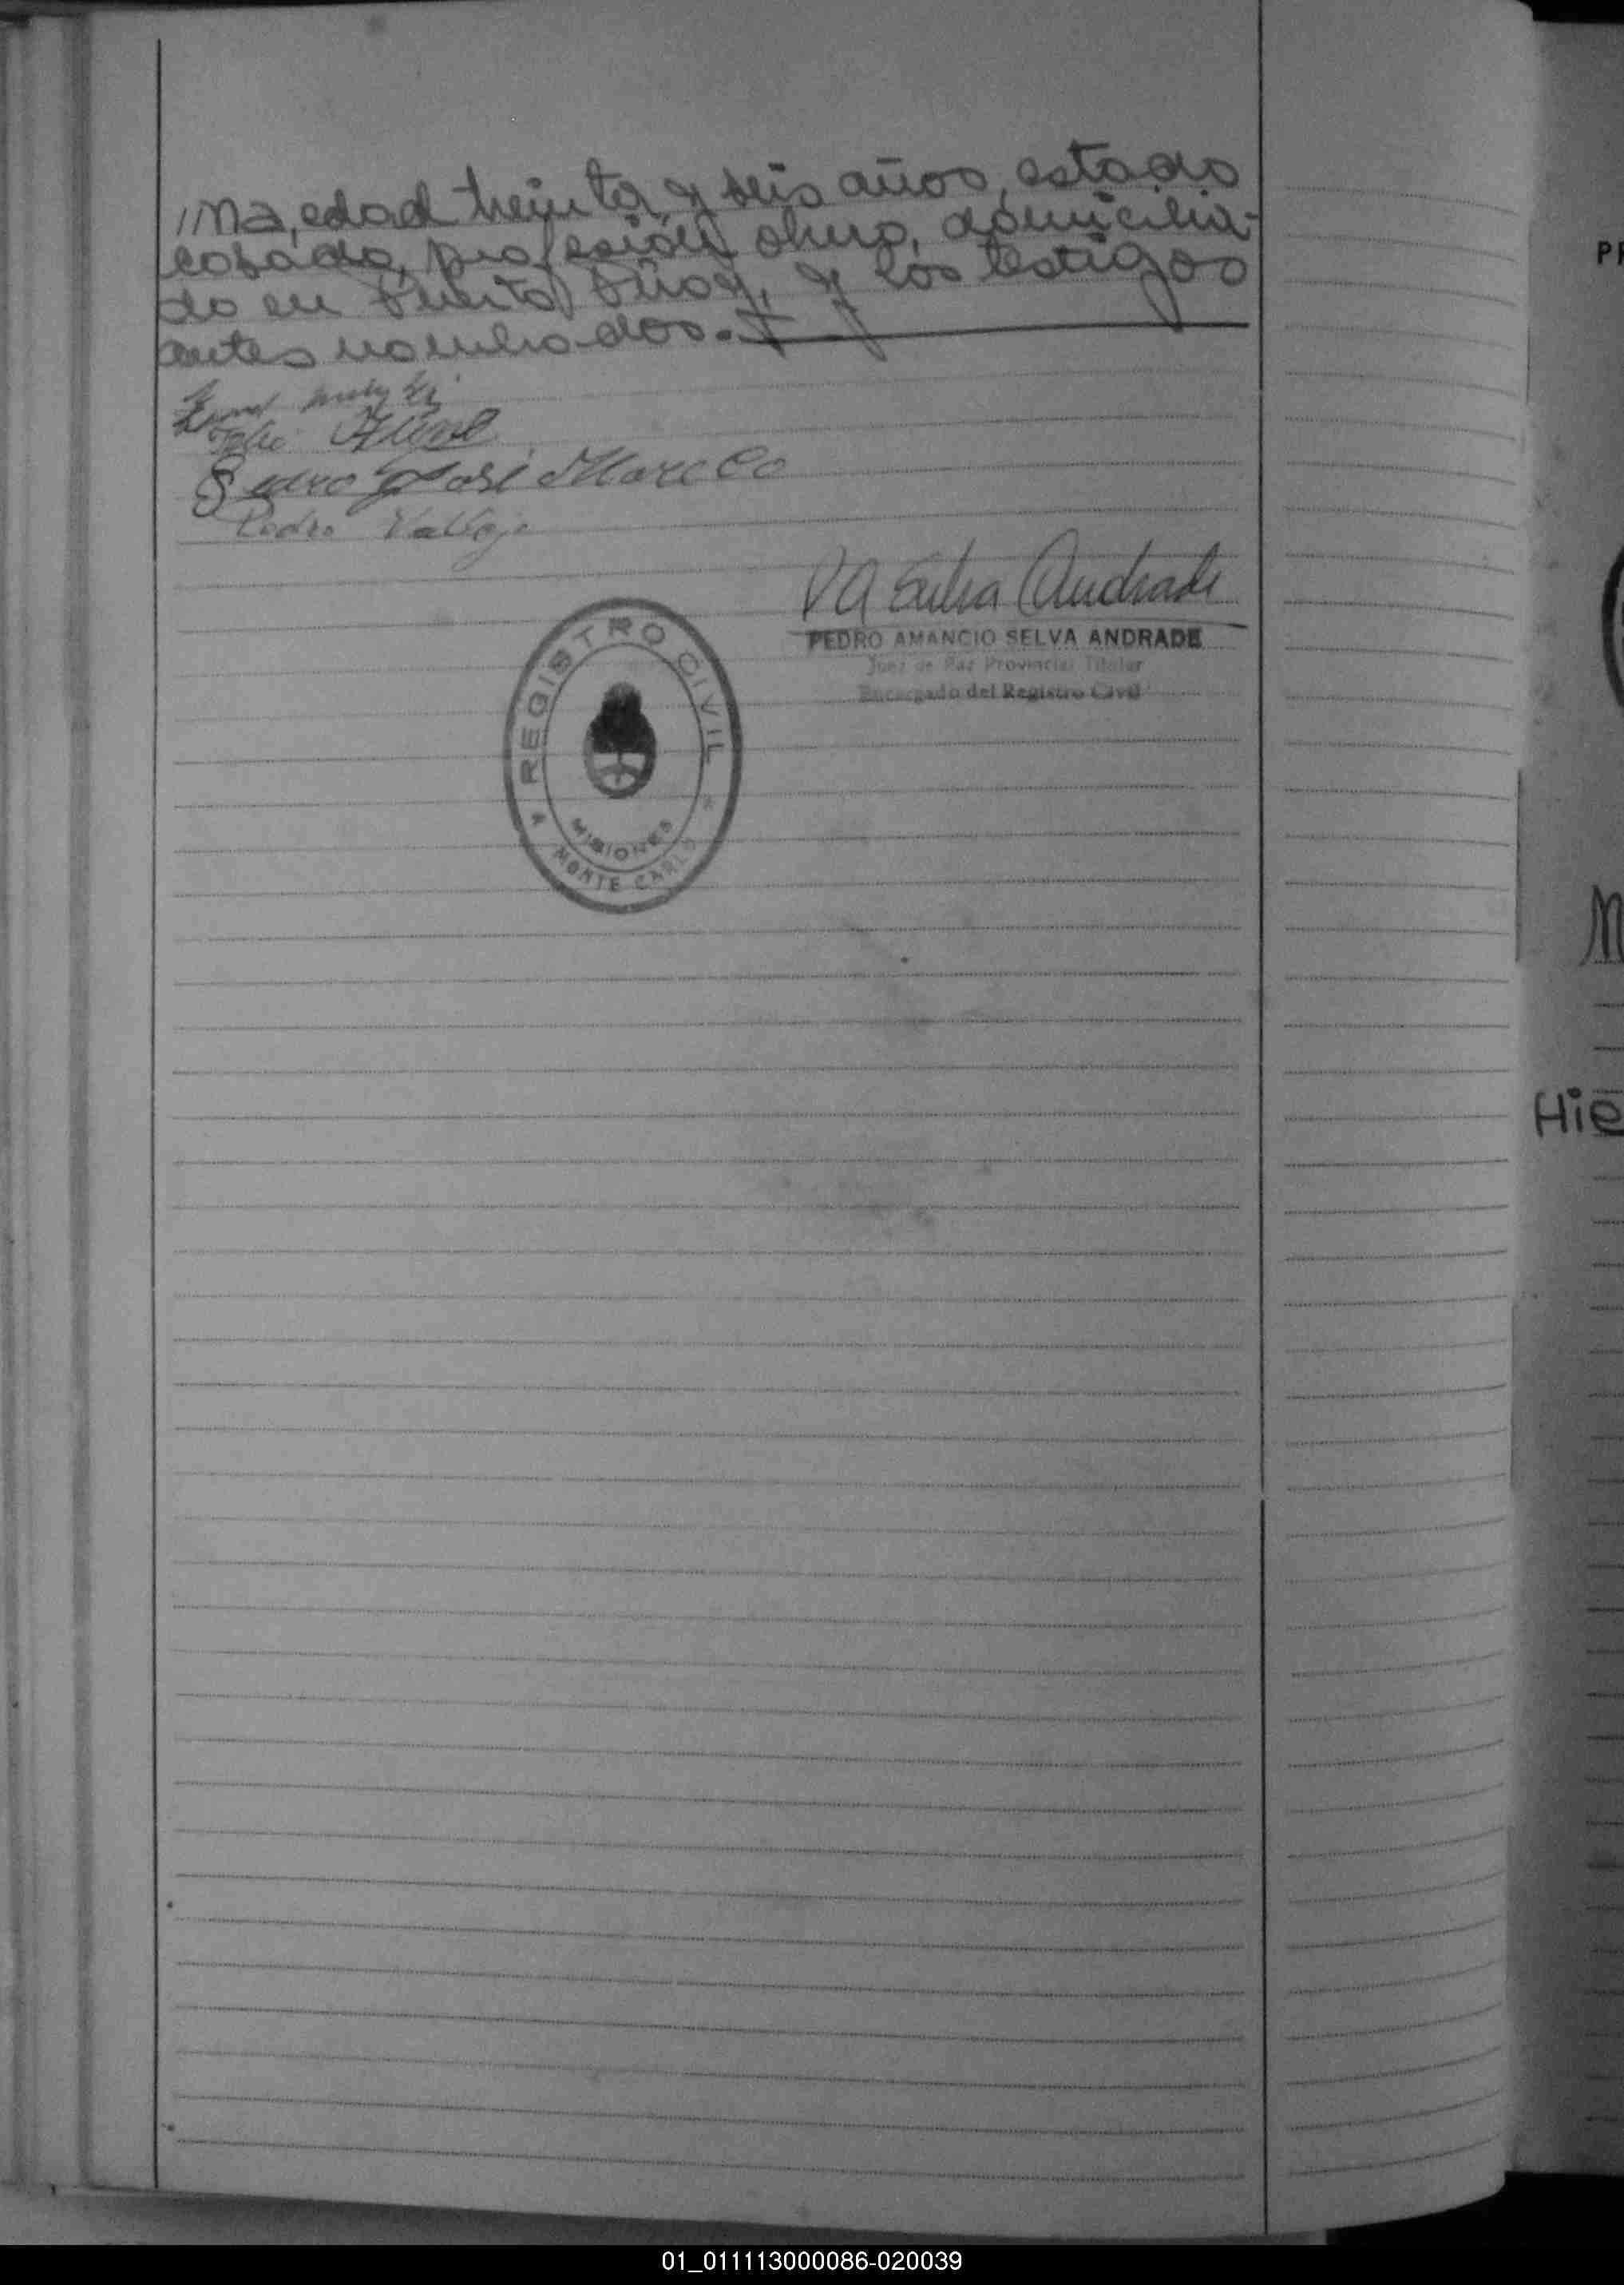 //na, edad treinta y seis años, estado
casado, profesión obrero, domicilia-
do en Puerto Piray, y los testigos
antes nombrados.-
Pedro José Marecco
Pedro Vallejo
PA Selva Andrade
PEDRO AMANCIO SELVA ANDRADE
Juez de Paz Provincial Titular
Encargado del Registro Civil
REGISTRO CIVIL
MISIONES
MONTE CARLO
PR
M
Hie
01_011113000086-020039